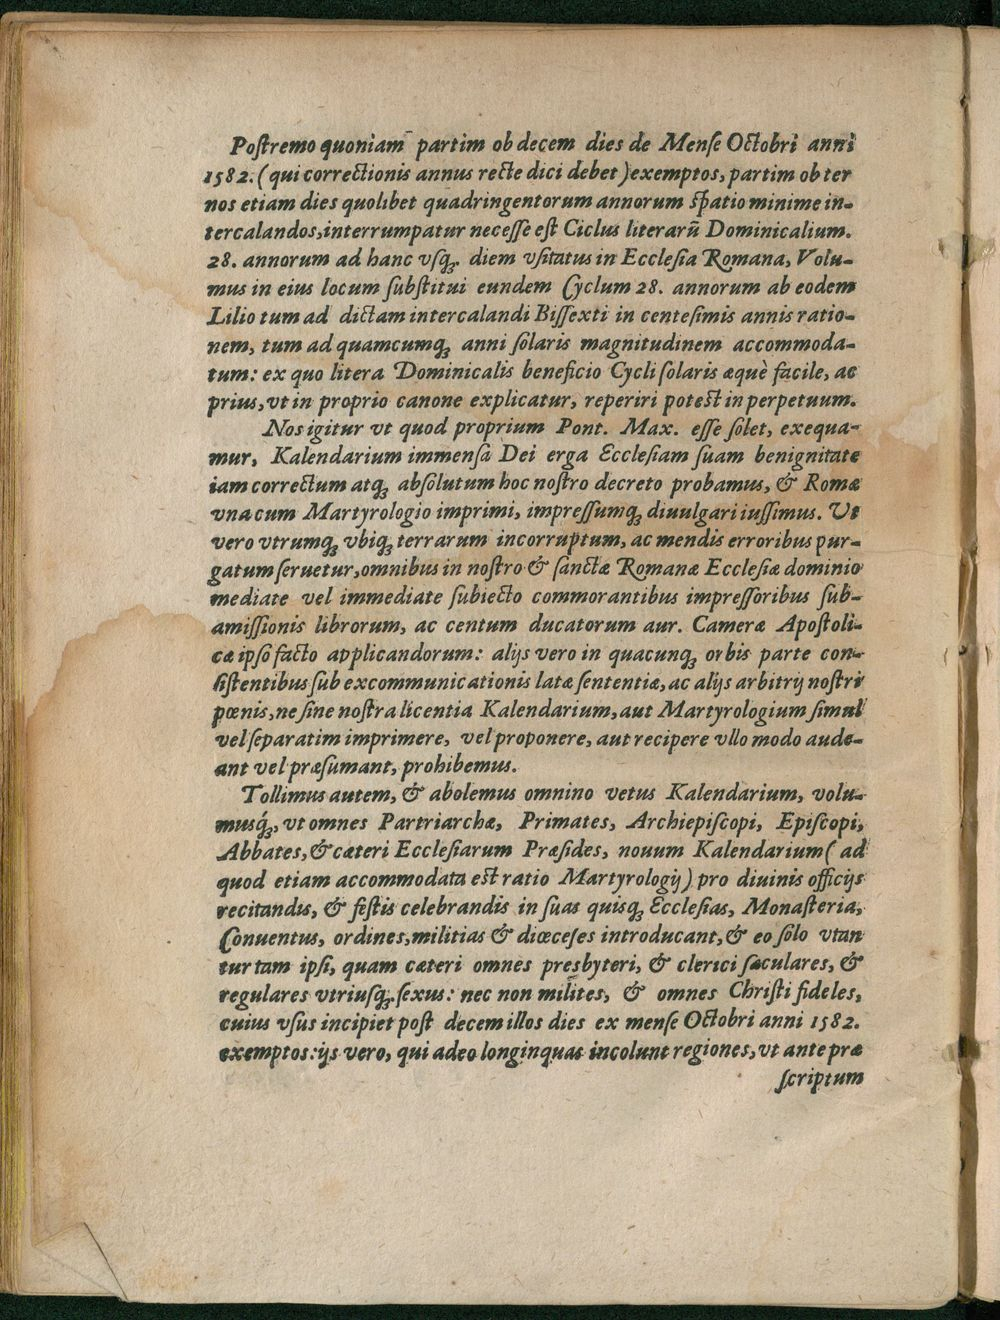 Postremo quoniam partim ob decem dies de Mense Octobri anni
1582. (qui correctionis annus recte dici debet) exemptos, partim ob ter
nos etiam dies quolibet quadringentorum annorum spatio minime in-
tercalandos, interrumpatur necesse est Ciclus literarū Dominicalium.
28. annorum ad hanc vsq;. diem vsitatus in Ecclesia Romana, Volu-
mus in eius locum substitui eundem Cyclum 28. annorum ab eodem
Lilio tum ad dictam intercalandi Bissexti in centesimis annis ratio-
nem, tum ad quamcumq; anni solaris magnitudinem accommoda-
tum: ex quo litera Dominicalis beneficio Cycli solaris æquè facile, ac
prius, vt in proprio canone explicatur, reperiri potest in perpetuum.
Nos igitur vt quod proprium Pont. Max. esse solet, exequa-
mur, Kalendarium immensa Dei erga Ecclesiam suam benignitate
iam correctum atq; absolutum hoc nostro decreto probamus, & Romæ
vna cum Martyrologio imprimi, impressumq; diuulgari iussimus. Vt
vero vtrumq; vbiq; terrarum incorruptum, ac mendis erroribus pur-
gatum seruetur, omnibus in nostro & sanctæ Romanæ Ecclesiæ dominio
mediate vel immediate subiecto commorantibus impressoribus sub-
amissionis librorum, ac centum ducatorum aur. Cameræ Apostoli-
cæ ipso facto applicandorum: alijs vero in quacunq; orbis parte con-
sistentibus sub excommunicationis latæ sententiæ, ac alijs arbitrij nostri
pœnis, ne sine nostra licentia Kalendarium, aut Martyrologium simul
vel separatim imprimere, vel proponere, aut recipere vllo modo aude-
ant vel præsumant, prohibemus.
Tollimus autem, & abolemus omnino vetus Kalendarium, volu-
musq́;, vt omnes Partriarchæ, Primates, Archiepiscopi, Episcopi,
Abbates, & cæteri Ecclesiarum Præsides, nouum Kalendarium (ad
quod etiam accommodata est ratio Martyrologij) pro diuinis officijs
recitandis, & festis celebrandis in suas quisq; Ecclesias, Monasteria,
Conuentus, ordines, militias & diœceses introducant, & eo solo vtan
tur tam ipsi, quam cæteri omnes presbyteri, & clerici sæculares, &
regulares vtriusq;. sexus: nec non milites, & omnes Christi fideles,
cuius vsus incipiet post decem illos dies ex mense Octobri anni 1582.
exemptos: ijs vero, qui adeo longinquas incolunt regiones, vt ante præ
scriptum